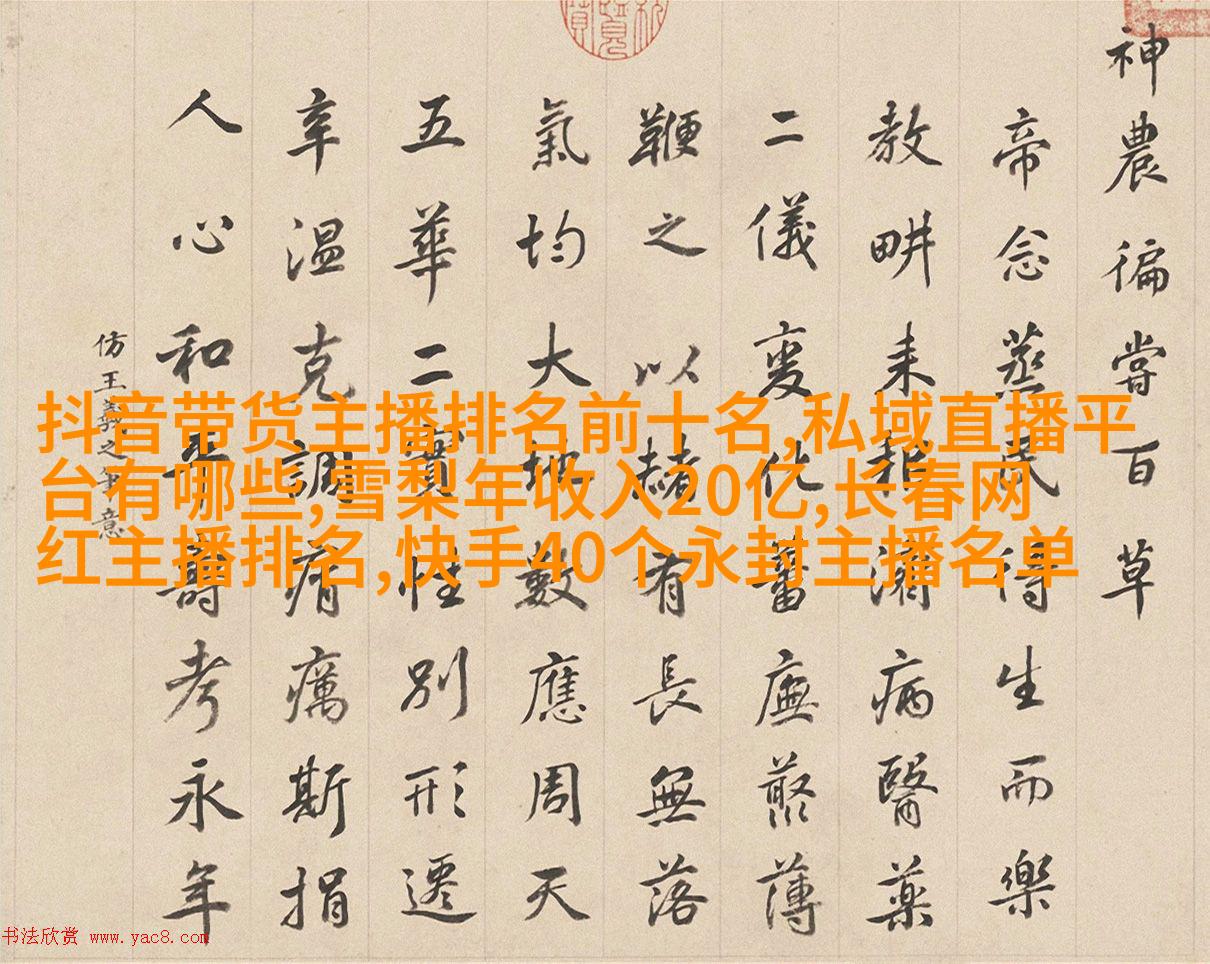 神農徧嘗百草
帝念蒸民得生而樂
教畊耒耜病醫藥
二儀變化蕃廡叢薄
鞭之以赭有長無落
氣均大地數應周天
五華二實性別形遷
辛溫克調痟癘斯捐
人心和平壽考永年
仿王羲之筆意
抖音带货主播排名前十名,私域直播平
台有哪些,雪梨年收入20亿,长春网
红主播排名,快手40个永封主播名单
书法欣赏 www.yac8.com